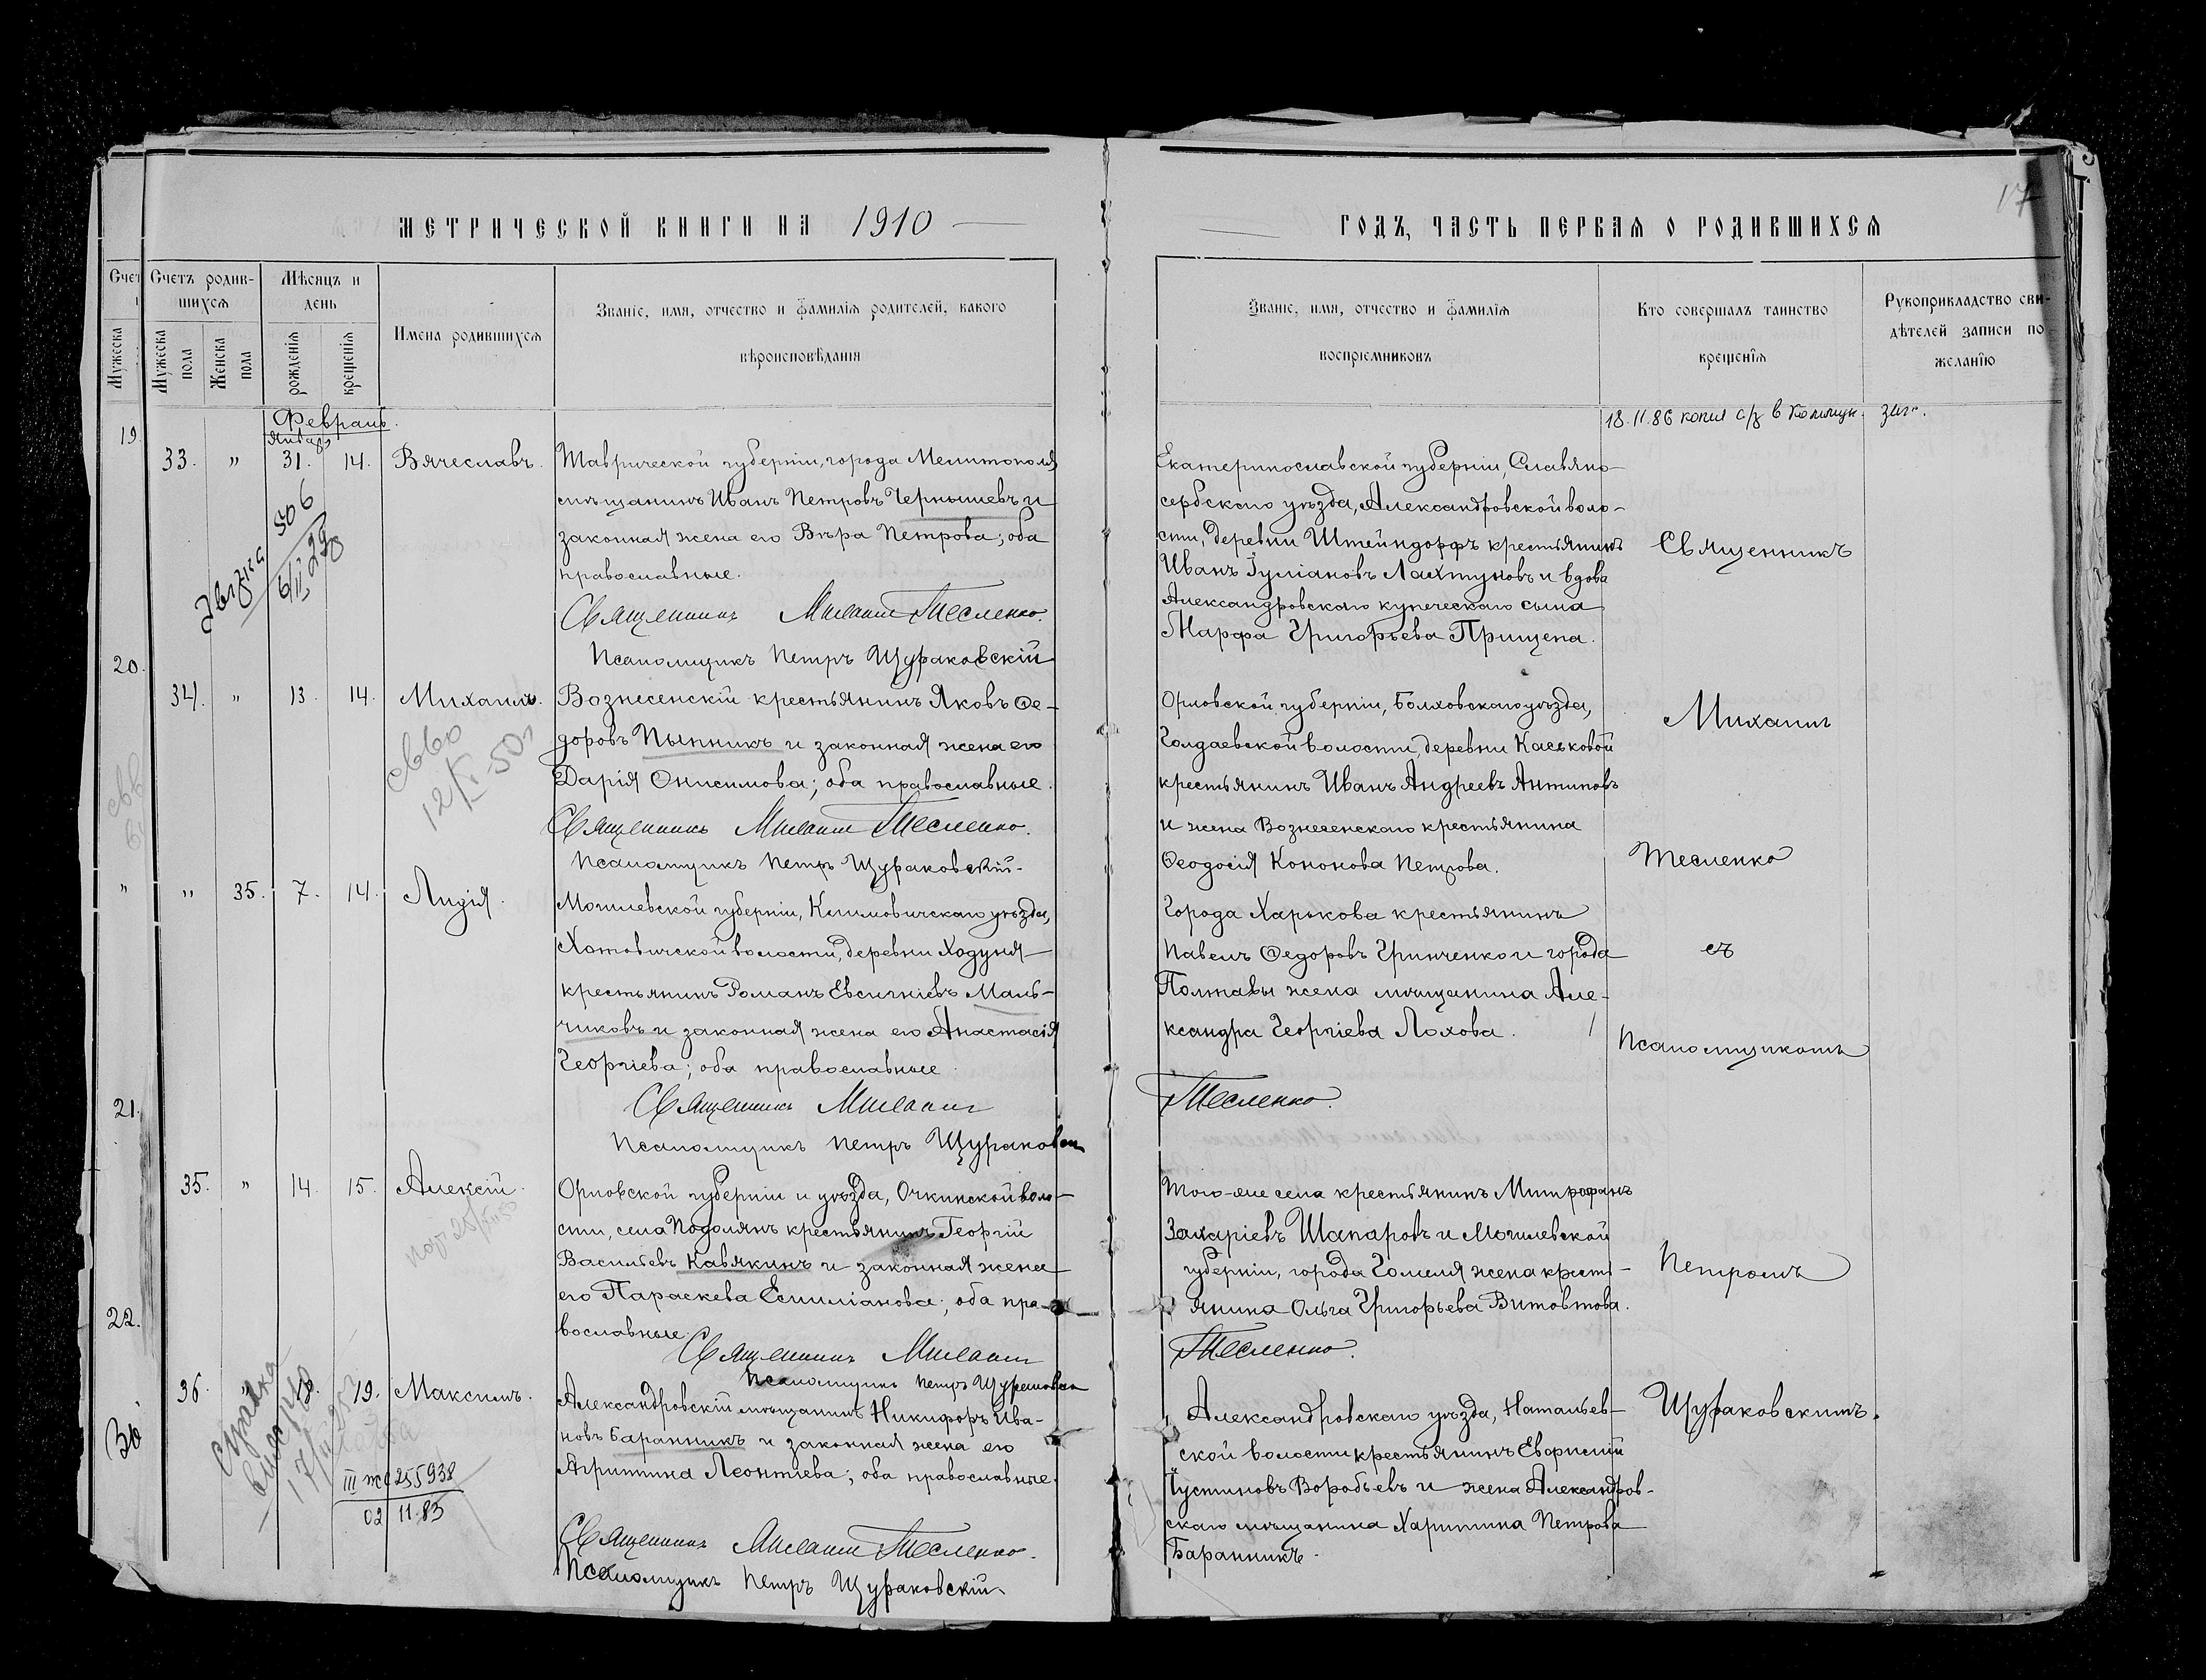 МЕТРИЧЕСКОЙ КНИГИ НА 1910
ГОДЪ, ЧАСТЬ ПЕРВАЯ О РОДИВШИХСЯ
17
Счет
Мужеска
Счетъ родив-
шихся
Мужеска пола
Женска пола
Мѣсяцъ и
день
рожденія
крещенія
Имена родившихся
Званіе, имя, отчество и фамилія родителей, какого
вѣроисповѣданія
Званіе, имя, отчество и фамилія
воспріемниковъ
Кто совершалъ таинство
крещенія
Рукоприкладство сви-
дѣтелей записи по
желанію
18.11.86 копия с/з в
Февраль.
Января
19.
33. " 31. 14. Вячеславъ.
Таврической губерніи, города Мелитополя
мѣщанинъ Иванъ Петровъ Чернышевъ и
законная жена его Вѣра Петрова; оба
православные.
Священникъ Михаилъ Тесленко.
Псаломщикъ Петръ Щураковскій
Екатеринославской губерніи, Славяно-
сербскаго уѣзда, Александровской воло-
сти, деревни Штейндорфъ крестьянинъ
Иванъ Іуліановъ Лахтуновъ и вдова
Александровскаго купеческаго сына
Марфа Григорьева Прищепа.
506
6/II 29
20.
34. " 13. 14. Михаилъ.
Вознесенскій крестьянинъ Яковъ Ѳе-
доровъ Пыпникъ и законная жена его
Дарія Онисимова; оба православные.
Священникъ Михаилъ Тесленко.
Псаломщикъ Петръ Щураковскій.
Орловской губерніи, Болховскаго уѣзда,
Голдаевской волости, деревни Каськовой
крестьянинъ Иванъ Андреевъ Антиповъ
и жена Вознесенскаго крестьянина
Ѳеодосія Кононова Петрова.
" " 35. 7. 14. Лидія.
Могилевской губерніи, Климовичскаго уѣзда,
Хотовичской волости, деревни Ходуня
крестьянинъ Романъ Евсигніевъ Маль-
чиковъ и законная жена его Анастасія
Георгіева; оба православные.
Священникъ Михаилъ Тесленко.
Псаломщикъ Петръ Щураковскій
Города Харькова крестьянинъ
Павелъ Ѳедоровъ Гринченко и города
Полтавы жена мѣщанина Але-
ксандра Георгіева Лохова.
21.
35. " 14. 15. Алексій.
Орловской губерніи и уѣзда, Очкинской воло-
сти, села Подолянъ крестьянинъ Георгій
Васильевъ Кавякинъ и законная жена
его Параскева Емиліанова; оба пра-
вославные.
Священникъ Михаилъ Тесленко.
Псаломщикъ Петръ Щураковскій
Того-же села крестьянинъ Митрофанъ
Захаріевъ Шапаровъ и Могилевской
губерніи, города Гомеля жена кресть-
янина Ольга Григорьева Витовтова.
22.
36. " 18. 19. Максимъ.
Александровскій мѣщанинъ Никифоръ Ива-
новъ Баранникъ и законная жена его
Агриппина Леонтіева; оба православные.
Священникъ Михаилъ Тесленко.
Псаломщикъ Петръ Щураковскій.
Александровскаго уѣзда, Натальев-
ской волости крестьянинъ Евфимій
Іустиновъ Воробьевъ и жена Александров-
скаго мѣщанина Харитина Петрова
Баранникъ.
III жс 255938
02 11.83
Священникъ
Михаилъ
Тесленко
съ
Псаломщикомъ
Петромъ
Щураковскимъ.